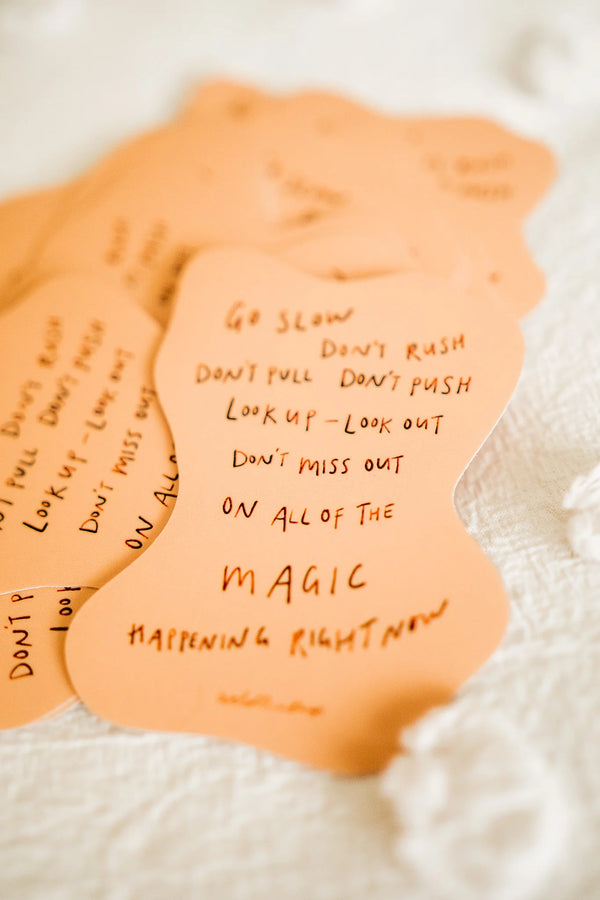 GO SLOW
DON'T RUSH
DON'T PULL DON'T PUSH
LOOK UP - LOOK OUT
DON'T MISS OUT
ON ALL OF THE
MAGIC
HAPPENING RIGHT NOW
DON'T RUSH
PULL DON'T PUSH
LOOK UP - LOOK OUT
DON'T MISS OUT
ON ALL
DON'T